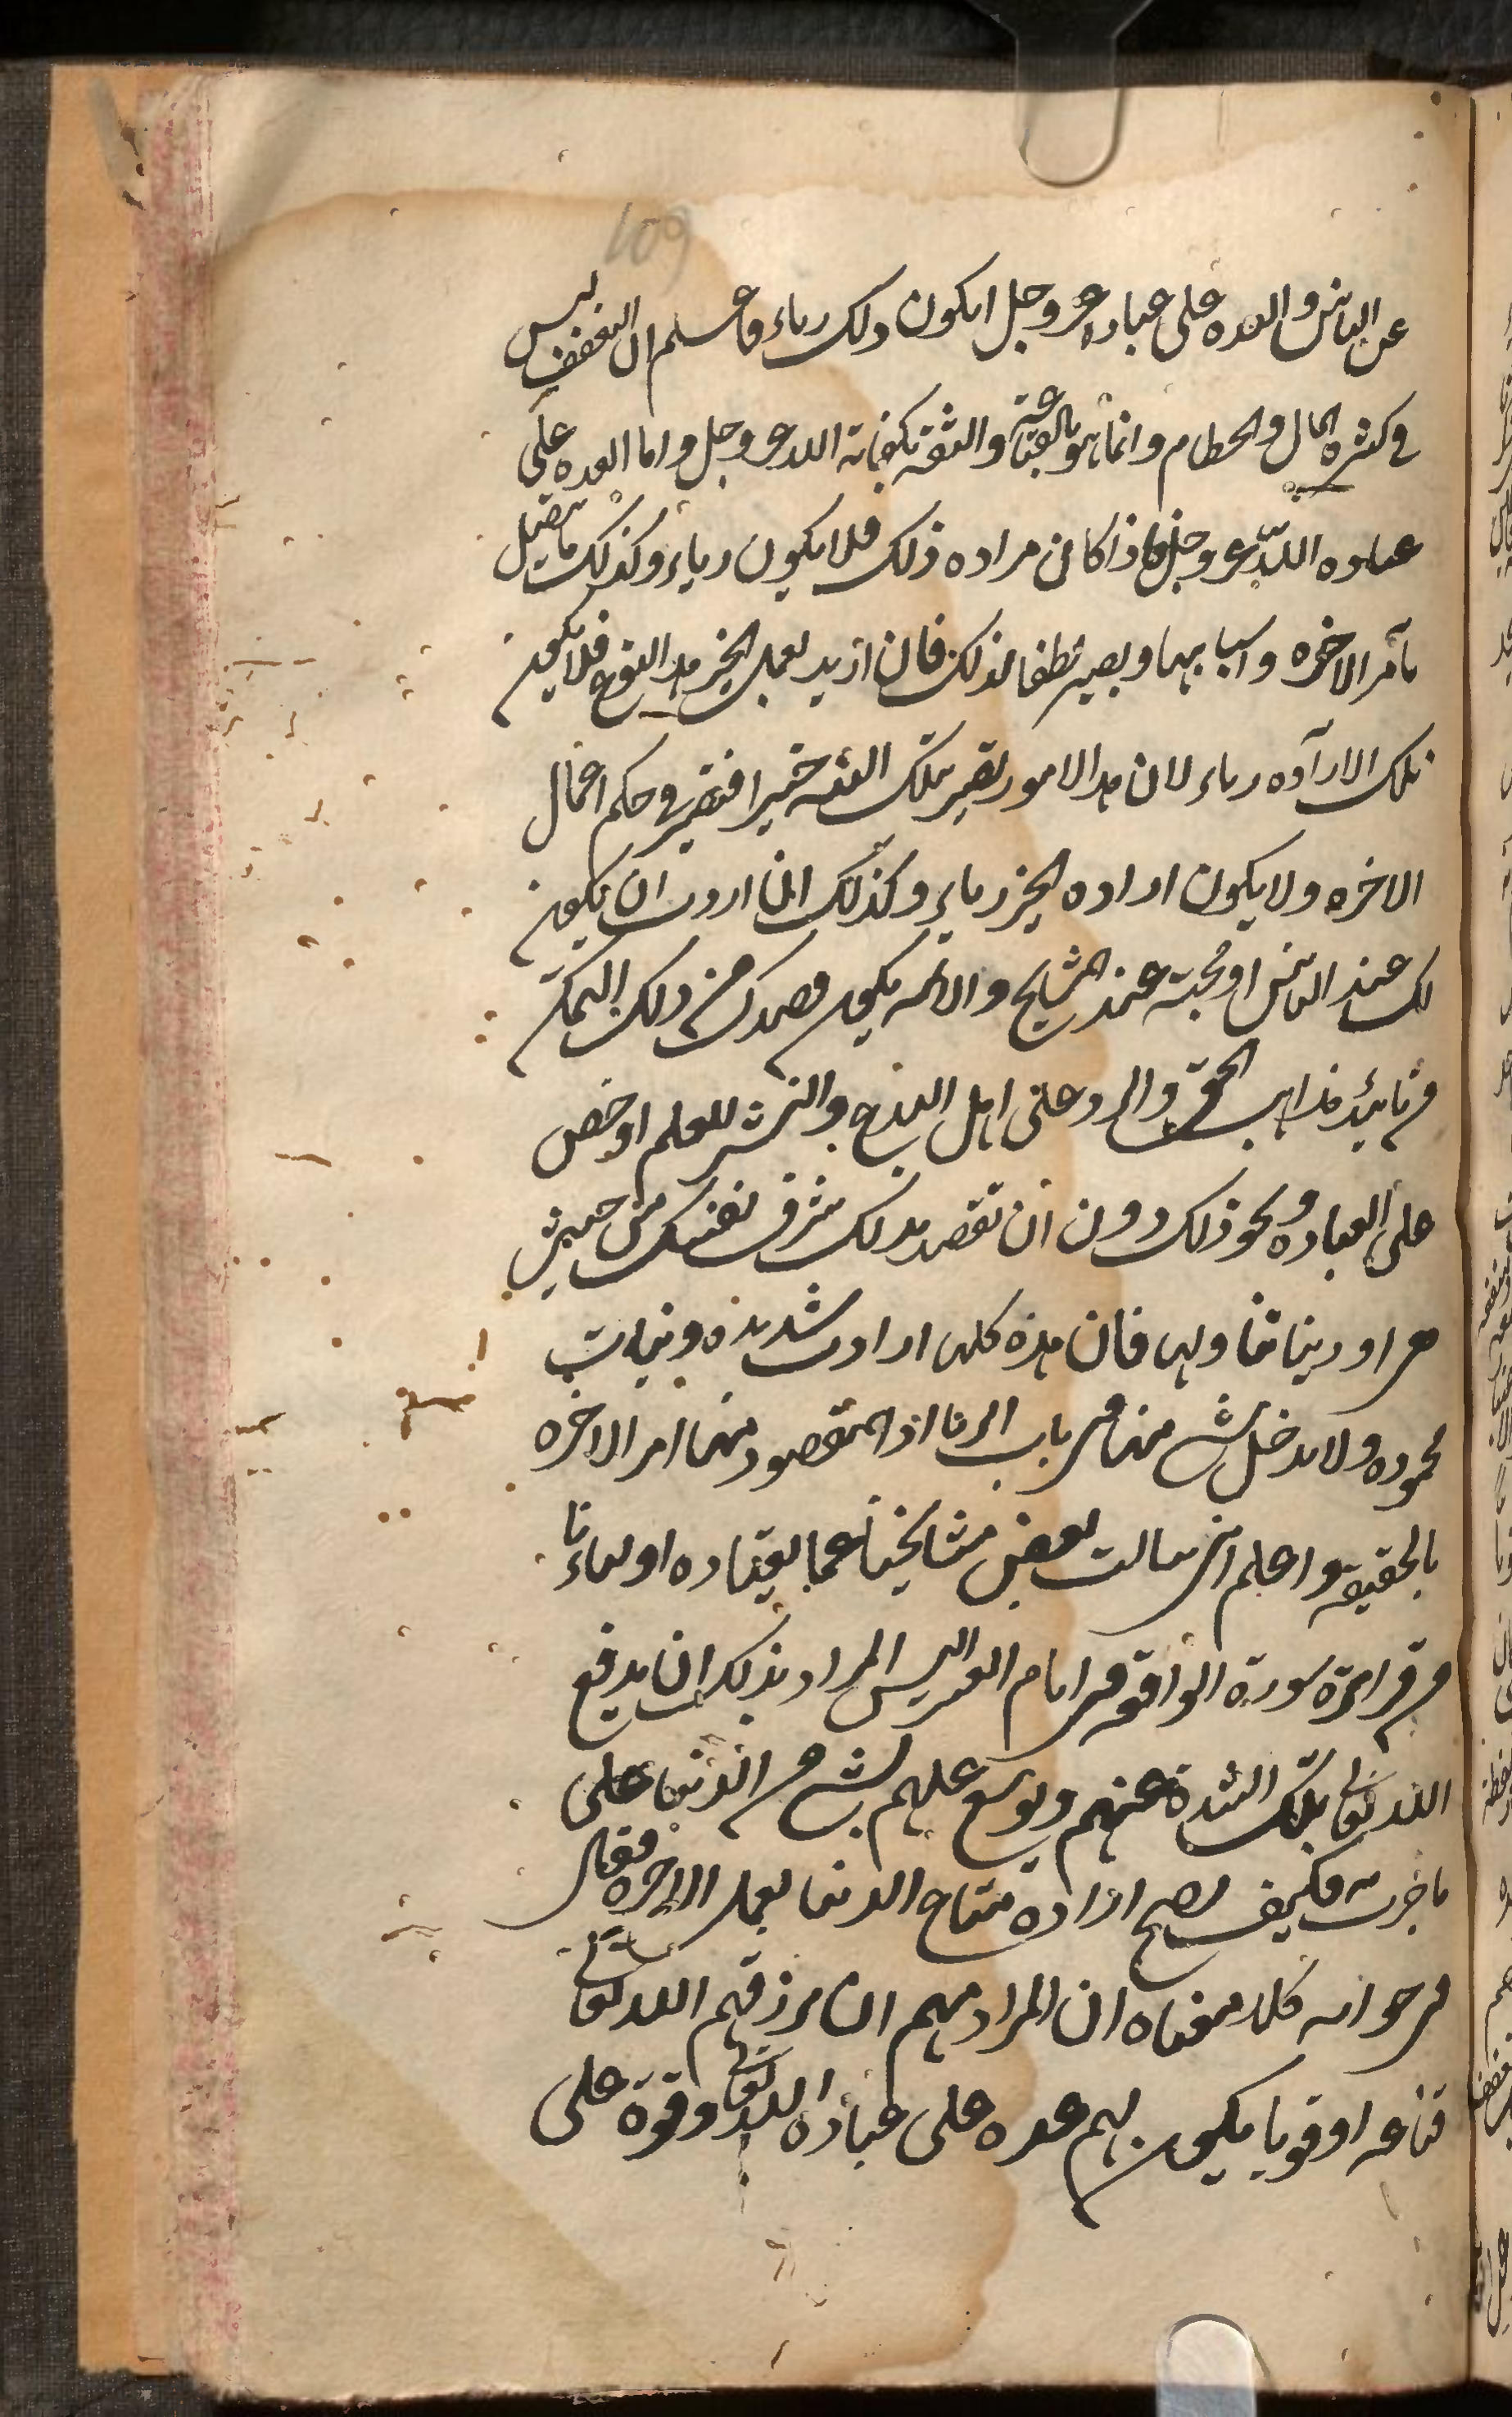 109
عن الناس والعده على عباده عز وجل ايكون ذلك رياء فاعلم ان التعفف ليس
في كثرة المال والحطام وانما هو بالقناعة والثقة بكفاية الله عز وجل واما العده على
عباده الله عز وجل فاذا كان مراده ذلك فلا يكون رياء وكذلك ما يتصل
بامر الاخره واسبابها ويصير لطفا لذلك فان اريد بعمل الخير هذا النوع فلا يكون
تلك الارآده رياء لان هذا الامور تصير بتلك النية خيرا فتصير في حكم اعمال
الاخره ولا يكون اراده الخير رياء وكذلك ان اردت ان يكون
لك عند الناس او محبة عند المشايخ والائمه يكون قصدك من ذلك التمكن
من تاييد مذاهب الحق والرد على اهل البدع والنشر للعلم او حض
على العباده ونحو ذلك دون ان تقصد بذلك شرف نفسك من حيث
هي او دنيا تنا ولها فان هذه كلها ارادت شديده ونيات
محموده ولا يدخل شي منها في باب الريا اذ المقصود منها امر الاخره
بالحقيقة واعلم اني سالت بعض مشايخنا عما يعتاده اولياءنا
من قراءة سورة الواقعه في ايام العسر اليس المراد بذلك ان يدفع
الله تعالى تلك الشدة عنهم ويوسع عليهم بشي من الدنيا على
ما جرت فكيف يصح ارادة متاع الدنيا بعمل الاخره فقال
في جوابه كلاما معناه ان المراد منهم ان يرزقهم الله تعالى
قناعه او قوتا يكون لهم عده على عباده الله تعالى وقوة على